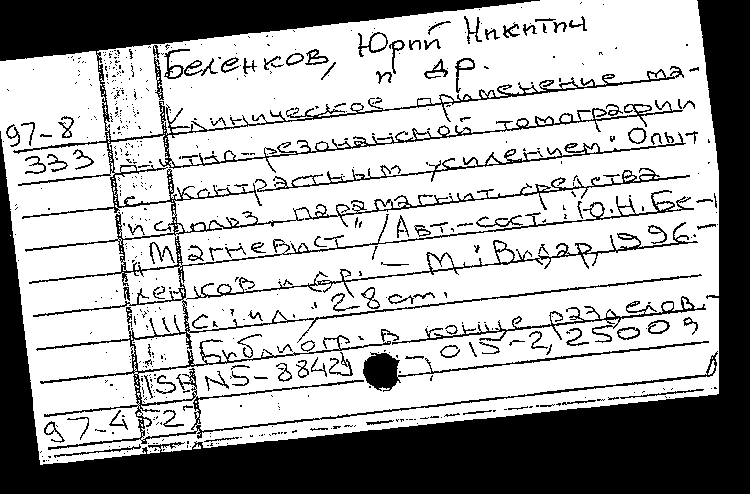 Беленков, Юрий Никитич
и др.
97-8
333
Клиническое применение ма-
гнитно-резонансной томографии
с контрастным усилением: Опыт
использ. парамагнит. средства
"Магневист" / Авт.-сост.: Ю.Н. Бе-
ленков и др. - М.: Видар, 1996. -
111 с.: ил.; 28 cm.
Библиогр. в конце разделов. -
ISBN 5-88429-015-2, 2500 э
97-4527